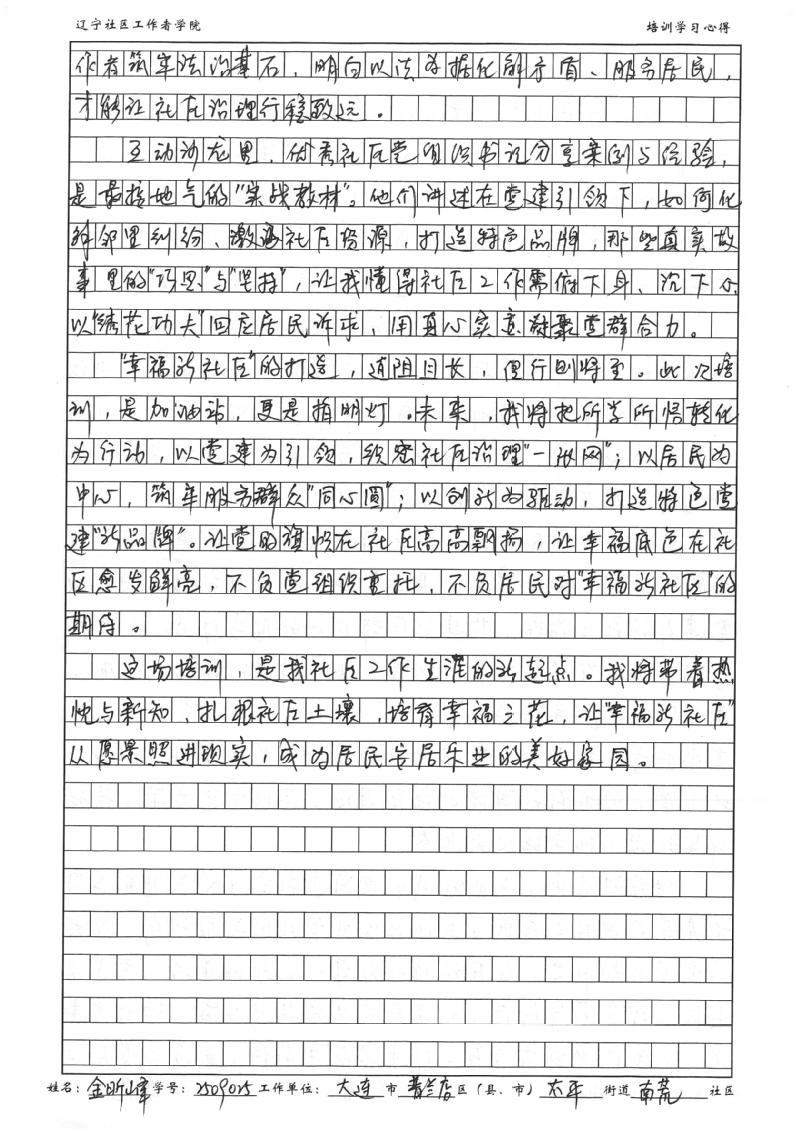 辽宁社区工作者学院 培训学习心得
作者筑牢法治基石,明白以法为据化解矛盾、服务居民,
才能让社区治理行稳致远。
互动沙龙里,优秀社区党组织书记分享案例与经验,
是最接地气的“实战教材”。他们讲述在党建引领下,如何化
解邻里纠纷、激活社区资源,打造特色品牌,那些真实故
事里的“巧思”与“坚持”,让我懂得社区工作需俯下身、沉下心
以“绣花功夫”回应居民诉求,用真心实意凝聚党群合力。
“幸福新社区”的打造,道阻且长,但行则将至。此次培
训,是加油站,更是指明灯。未来,我将把所学所悟转化
为行动,以党建为引领,织密社区治理“一张网”;以居民为
中心,筑牢服务群众“同心圆”;以创新为驱动,打造特色党
建“新品牌”。让党的旗帜在社区高高飘扬,让幸福底色在社
区愈发鲜亮,不负党组织重托,不负居民对“幸福新社区”的
期待。
这场培训,是我社区工作生涯的新起点。我将带着热
忱与新知,扎根社区土壤,培育幸福之花,让“幸福新社区”
从愿景照进现实,成为居民安居乐业的美好家园。
姓名:金昕峰 学号:2509025 工作单位:大连 市 普兰店 区(县、市) 太平 街道 南荒 社区